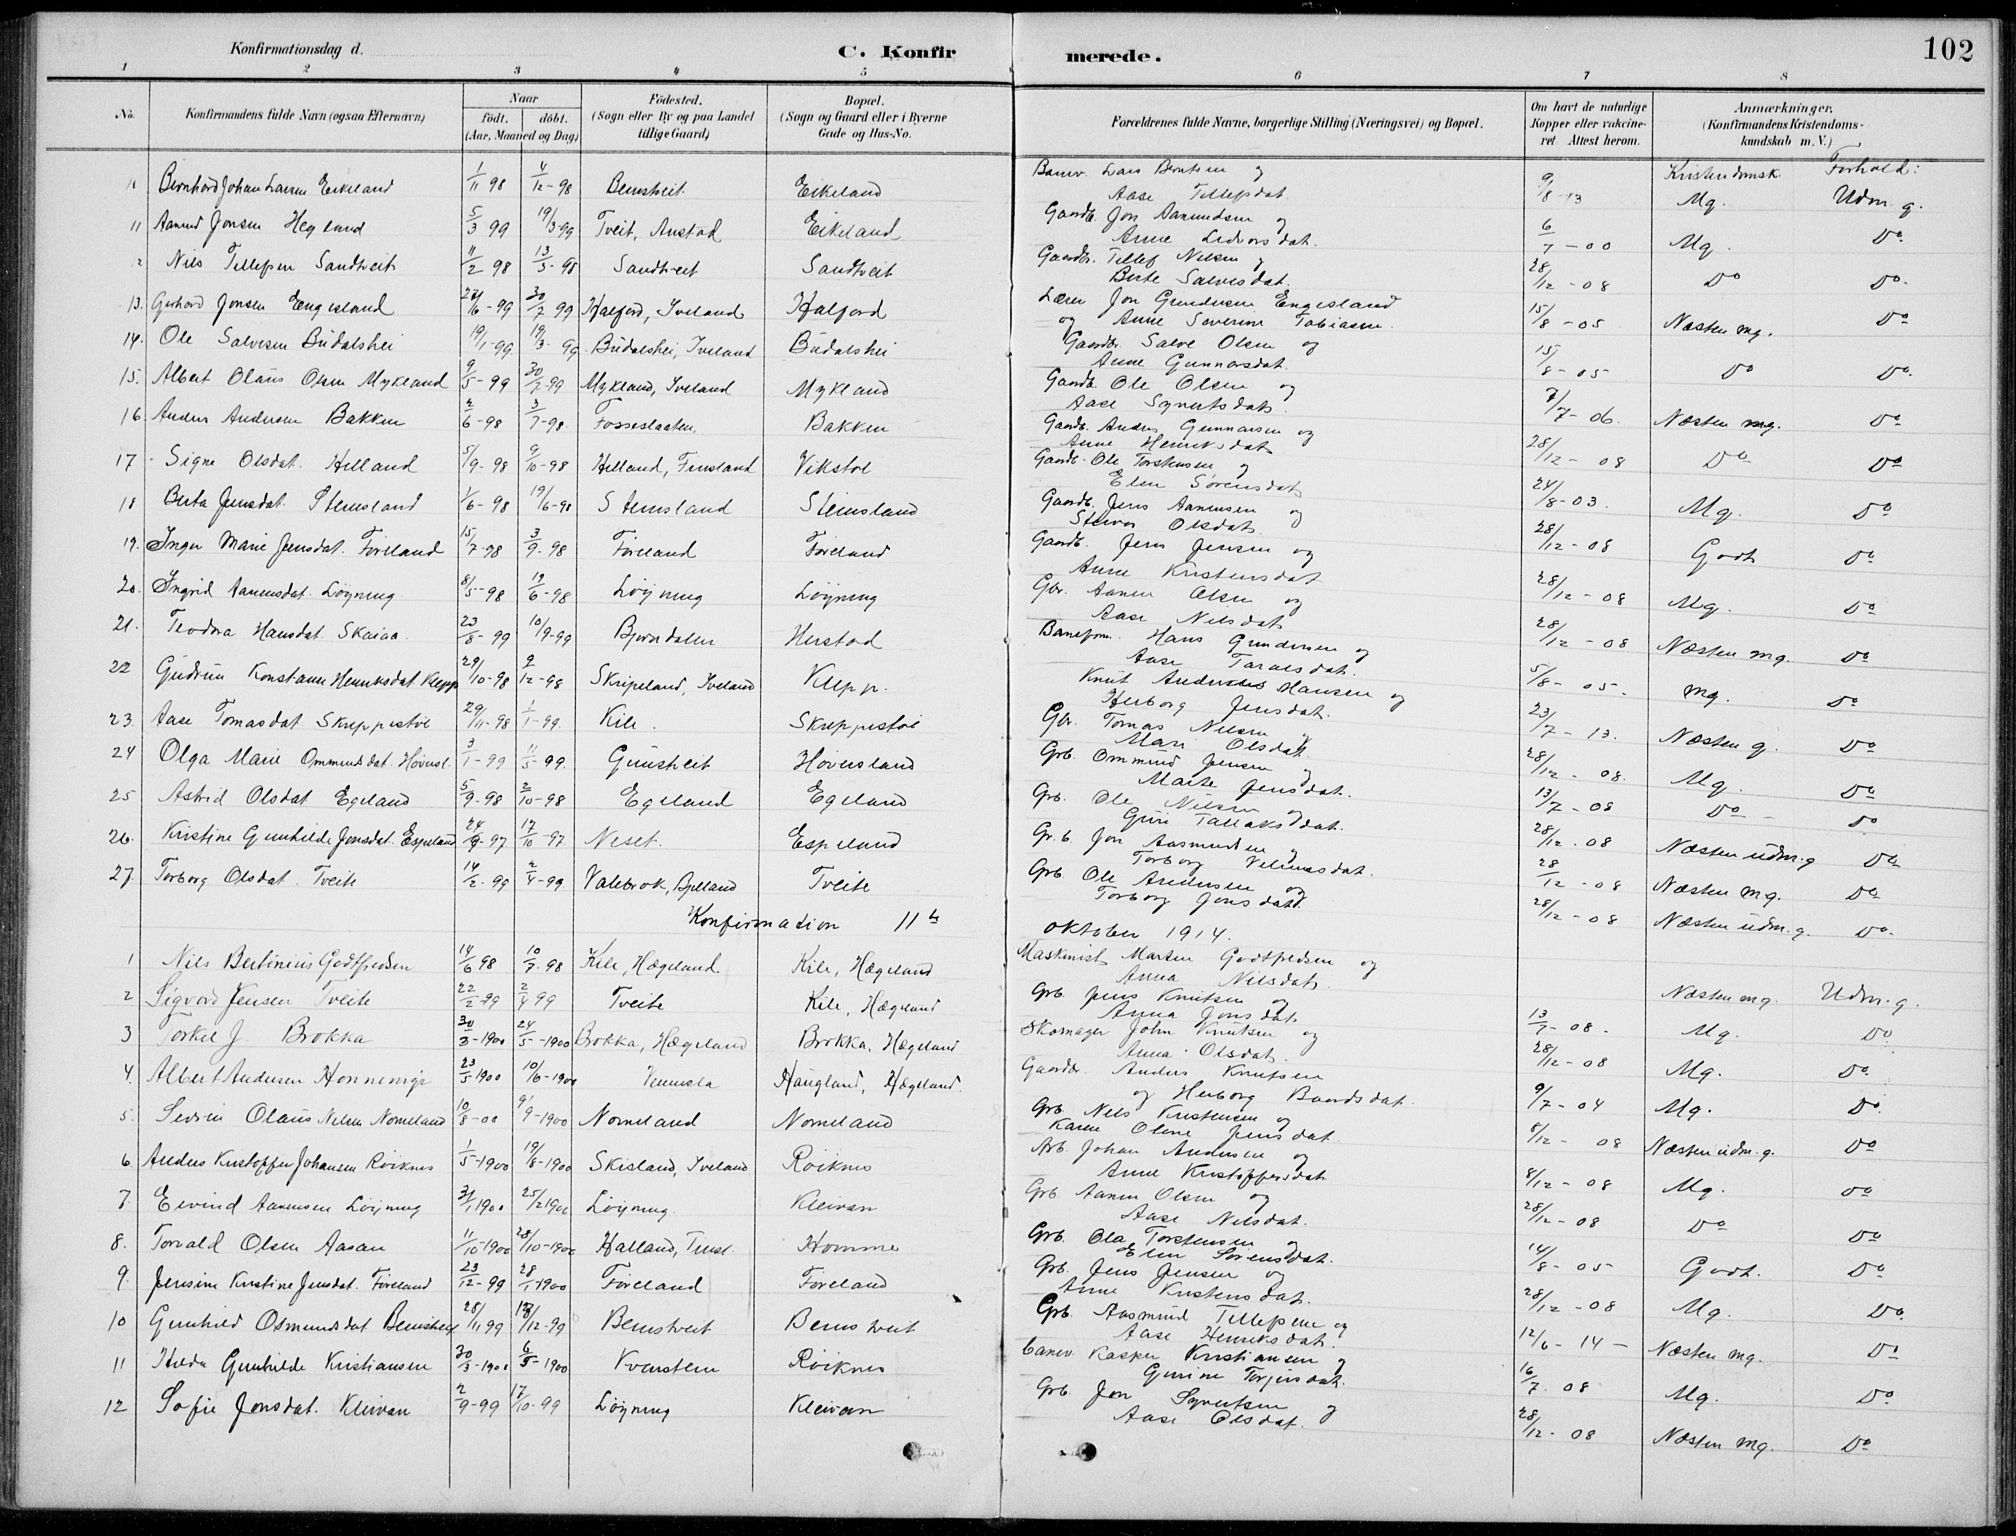 Konfirmationsdag d.
C. Konfir merede.
102
1 2 3 4 5 6 7 8
No.
Konfirmandens fulde Navn (ogsaa Efternavn)
Naar
födt. döbt.
(Aar, Maaned og Dag)
Födested.
(Sogn eller By og paa Landet
tillige Gaard)
Bopæl.
(Sogn og Gaard eller i Byerne
Gade og Hus-No.
Forældrenes fulde Navne, borgerlige Stilling (Næringsvei) og Bopæl.
Om havt de naturlige
Kopper eller vakcine-
ret Attest herom.
Anmærkninger.
(Konfirmandens Kristendoms-
kundskab m. V.)
Kristendomsk. Forhold:
Bernhard Johan Larsen Eikeland 1/11 98 4/12-98 Beinstveit Eikeland Lars Berntsen og
Aase Tellefsdat. 9/8-13 Mg. Udm. g.
11 Aanund Jonsen Hegland 5/3 99 19/3-99 Tveit, Austad Eikeland Gaardb. Jon Aanundsen og
Anne Ledvorsdat. 6/7-00 Mg. Do
2 Nils Tellefsen Sandtveit 11/2 98 13/3-98 Sandtveit Sandtveit Gaardbr. Tellef Nilsen og
Berte Salvesdat. 28/12-08 Do Do.
13. Gerhard Jonsen Engesland 27/6-99 30/7 99 Katfjord, Iveland Katfjord Lærer Jon Gundersen Engesland
og Anne Severine Tobiasen. 15/8-05 Næsten mg. Do
14. Ole Salvesen Budalshei 19/1-99 19/3 99 Budalshei, Iveland Budalshei Gaardbr. Salve Olsen og
Anne Gunnarsdat. 15/8-05 Do Do.
15. Albert Olaus Olsen Mykland 9/5-99 30/7-99 Mykland, Iveland Mykland Gaardb. Ole Olsen og
Aase Syvertsdat. 7/7-06. Næsten mg. Do
16. Anders Andersen Bakken 2/6-98 3/7-98 Fosseslaaten. Bakken Gaardb. Anders Gunnarsen og
Anne Henriksdat. 28/12-08 Do Do
17 Signe Olsdat. Helland 5/9-98 9/10-98 Helland, Finsland Vikstøl Gaardb. Ole Torstensen og
Elen Sørensdat. 24/8-03. Mg. Do
18 Berta Jensdat. Steinsland 1/6-98 19/6-98 Steinsland Steinsland Gaardb. Jens Aanensen og
Steinvor Olsdat. 28/12-08 Godt Do
19. Inger Marie Jensdat. Føreland 15/7-98 3/9-98 Føreland Føreland Gaardb. Jens Jensen og
Anne Kristensdat. 28/12-08 Mg. Do
20. Ingrid Aanensdat. Løyning 8/5-98 19/6-98 Løyning Løyning Gbr. Aanen Olsen og
Aase Nilsdat. 28/12-08 Næsten mg. Do
21. Teodora Hansdat. Skaiaa. 23/8-99 10/9-99 Bjørndalen Herstad Baneform. Hans Gundersen og
Aase Taraldsdat. 5/8-05. mg. Do
22 Gudrun Konstanse Henriksdat. Klepp 29/10-98 2/12-98 Skripeland, Iveland Klepp. Knut Andreas Hansen og
Herborg Jensdat. 23/7-13. Næsten g. Do
23. Aase Tomasdat Skreppestøl 29/11-98 1/1-99. Kile. Skreppestøl Gbr. Tomas Nilsen og
Mari Olsdatt. 28/12-08. Mg. Do
24 Olga Marie Ommundsdat. Høversl. 3/1-99 11/5-99. Grinstveit Høversland Grb. Ommund Jensen og
Marte Jensdat. 13/7-08 Do Do
25 Astrid Olsdat Egeland 5/9-98 2/10-98 Egeland Egeland Grb. Ole Nilsen og
Guri Tallaksdat. 28/12-08 Næsten udm. g Do
26. Kristine Gunhilde Jonsdat. Espeland 24/9-97 17/10-97 Neset. Espeland Gr.b. Jon Aasmundsen og
Torborg Velemsdat. 28/12-08 Næsten mg. Do
27. Torborg Olsdat. Tveite 14/2-99 2/4-99 Valebrok, Bjelland Tveite Grb. Ole Andersen og
Torborg Jonsdat. 28/12-08 Næsten udm. g. Do
Konfirmation 11te oktober 1914.
1 Nils Bertinius Godtfredsen 14/6 98 10/7-98 Kile, Hægeland. Kile, Hægeland Maskinist Martin Godtfredsen og
Anna Nilsdat. Næsten mg. Udm. g.
2 Sigvord Jensen Tveite 22/2-99 2/4 99 Tveite Kile, Hægeland Grb. Jens Knutsen og
Anna Jonsdat. 13/7-08. Mg. Do
3 Torkel J. Brokka 30/3-1900 24/5-1900 Brokka, Hægeland Brokka, Hægeland Skomager John Knutsen og
Anna Olsdat. 28/12-08 Mg. Do
4. Albert Andersen Honnemyr 23/5 1900 10/6-1900 Vennesla Haugland, Hægeland. Gaardbr. Anders Knutsen
og Herborg Baardsdat. 9/7-04 Mg. Do
5. Severin Olaus Nilsen Nomeland 10/8-00 9/9-1900 Nomeland Nomeland Grb. Nils Kristensen og
Karen Oline Jensdat. 8/12-08 Næsten udm. g. Do
6 Anders Kristoffer Johansen Røiknes 1/5-1900 19/8-1900 Skisland, Iveland Røiknes Arb. Johan Andersen og
Anne Kristoffersdat. 8/12-08 Mg. Do
7. Eivind Aanensen Løyning 31/1 1900 25/2 1900 Løyning. Kleivan Grb. Aanen Olsen og
Aase Nilsdat. 28/12-08 Do Do
8. Torvald Olsen Aasan 11/10-1900 28/10-1900 Halland, Finsl. Homme Grb. Ola Torstensen og
Elen Sørensdat. 14/8-05 Godt. Do
9. Jensine Kristine Jensdat. Føreland 23/12-99 28/1 1900 Føreland Føreland Grb. Jens Jensen og
Anne Kristensdat. 28/12-08 Mg. Do
10 Gunhild Osmundsdat Beinstveit 28/11 99 17/12-99 Beinstveit Beinstveit Grb. Aasmund Tellefsen og
Aase Henriksdat. 12/6-14 Næsten mg. Do
11 Hilda Gunhilde Kristiansen 30/3-1900 6/5-1900 Kvarstein Røiknes Kasper Kristiansen og
Gurine Torjusdat. 16/7.08 Mg. Do
12 Sofie Jonsdat. Kleivan 2/9-99 17/10-99 Løyning Kleivan Grb. Jon Syvertsen og
Aase Olsdat. 28/12-08 Næsten mg. Do